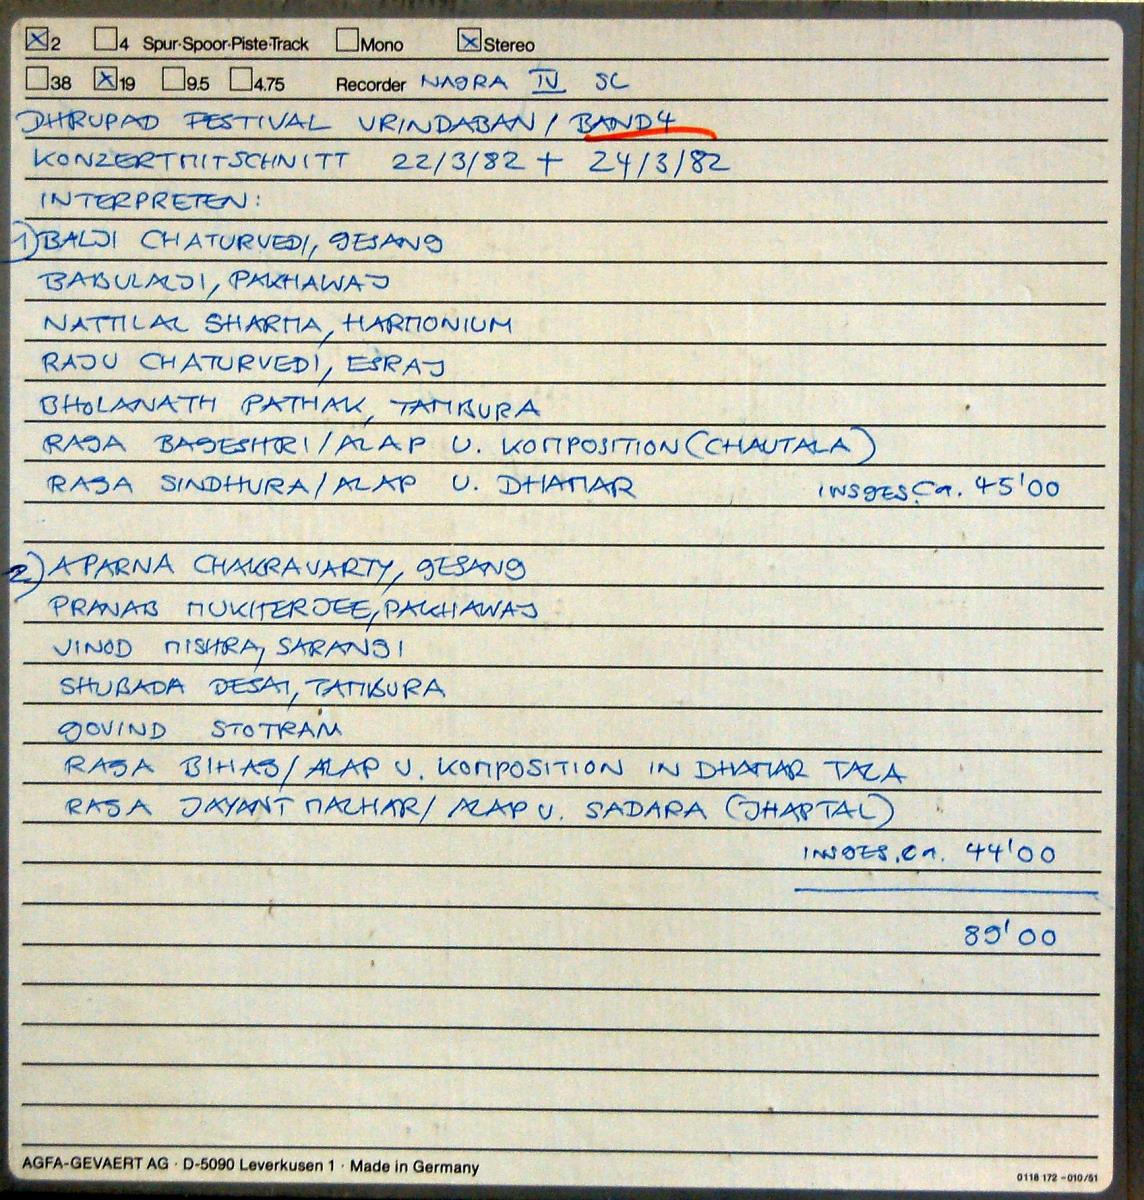 ☒2 ☐4 Spur·Spoor·Piste·Track ☐Mono ☒Stereo
☐38 ☒19 ☐9.5 ☐4.75 Recorder NAGRA IV SC
DHRUPAD FESTIVAL VRINDABAN / BAND 4
KONZERTMITSCHNITT 22/3/82 + 24/3/82
INTERPRETEN:
1) BALJI CHATURVEDI, GESANG
BABULALJI, PAKHAWAJ
NATTILAL SHARMA, HARMONIUM
RAJU CHATURVEDI, ESRAJ
BHOLANATH PATHAK, TAMBURA
RAGA BAGESHRI / ALAP U. KOMPOSITION (CHAUTALA)
RAGA SINDHURA / ALAP U. DHAMAR INSGES. CA. 45'00
2) APARNA CHAKRAVARTY, GESANG
PRANAB MUKHERJEE, PAKHAWAJ
VINOD MISHRA, SARANGI
SHUBADA DESAI, TAMBURA
GOVIND STOTRAM
RAGA BIHAG / ALAP U. KOMPOSITION IN DHAMAR TALA
RAGA JAYANT MALHAR / ALAP U. SADARA (JHAPTAL)
INSGES. CA. 44'00
89'00
AGFA-GEVAERT AG · D-5090 Leverkusen 1 · Made in Germany
0118 172 - 010/51